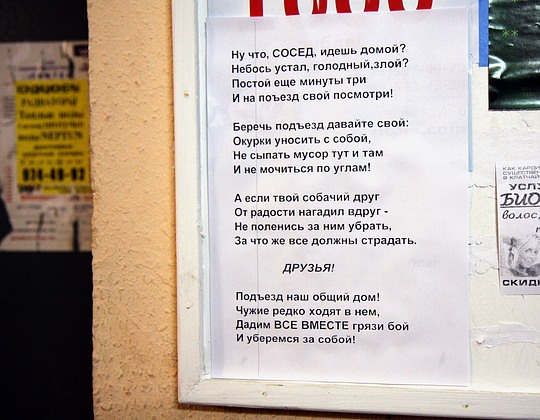 Ну что, СОСЕД, идешь домой?
Небось устал, голодный,злой?
Постой еще минуты три
И на подъезд свой посмотри!
Беречь подъезд давайте свой:
Окурки уносить с собой,
Не сыпать мусор тут и там
И не мочиться по углам!
А если твой собачий друг
От радости нагадил вдруг -
Не поленись за ним убрать,
За что же все должны страдать.
ДРУЗЬЯ!
Подъезд наш общий дом!
Чужие редко ходят в нем,
Дадим ВСЕ ВМЕСТЕ грязи бой
И уберемся за собой!
РАДИАТОРЫ
974-49-92
КАК КАРДИ
СУЩЕСТВЕН
В КРАТЧАЙ
УСЛУ
БИО
волос,
СКИДК